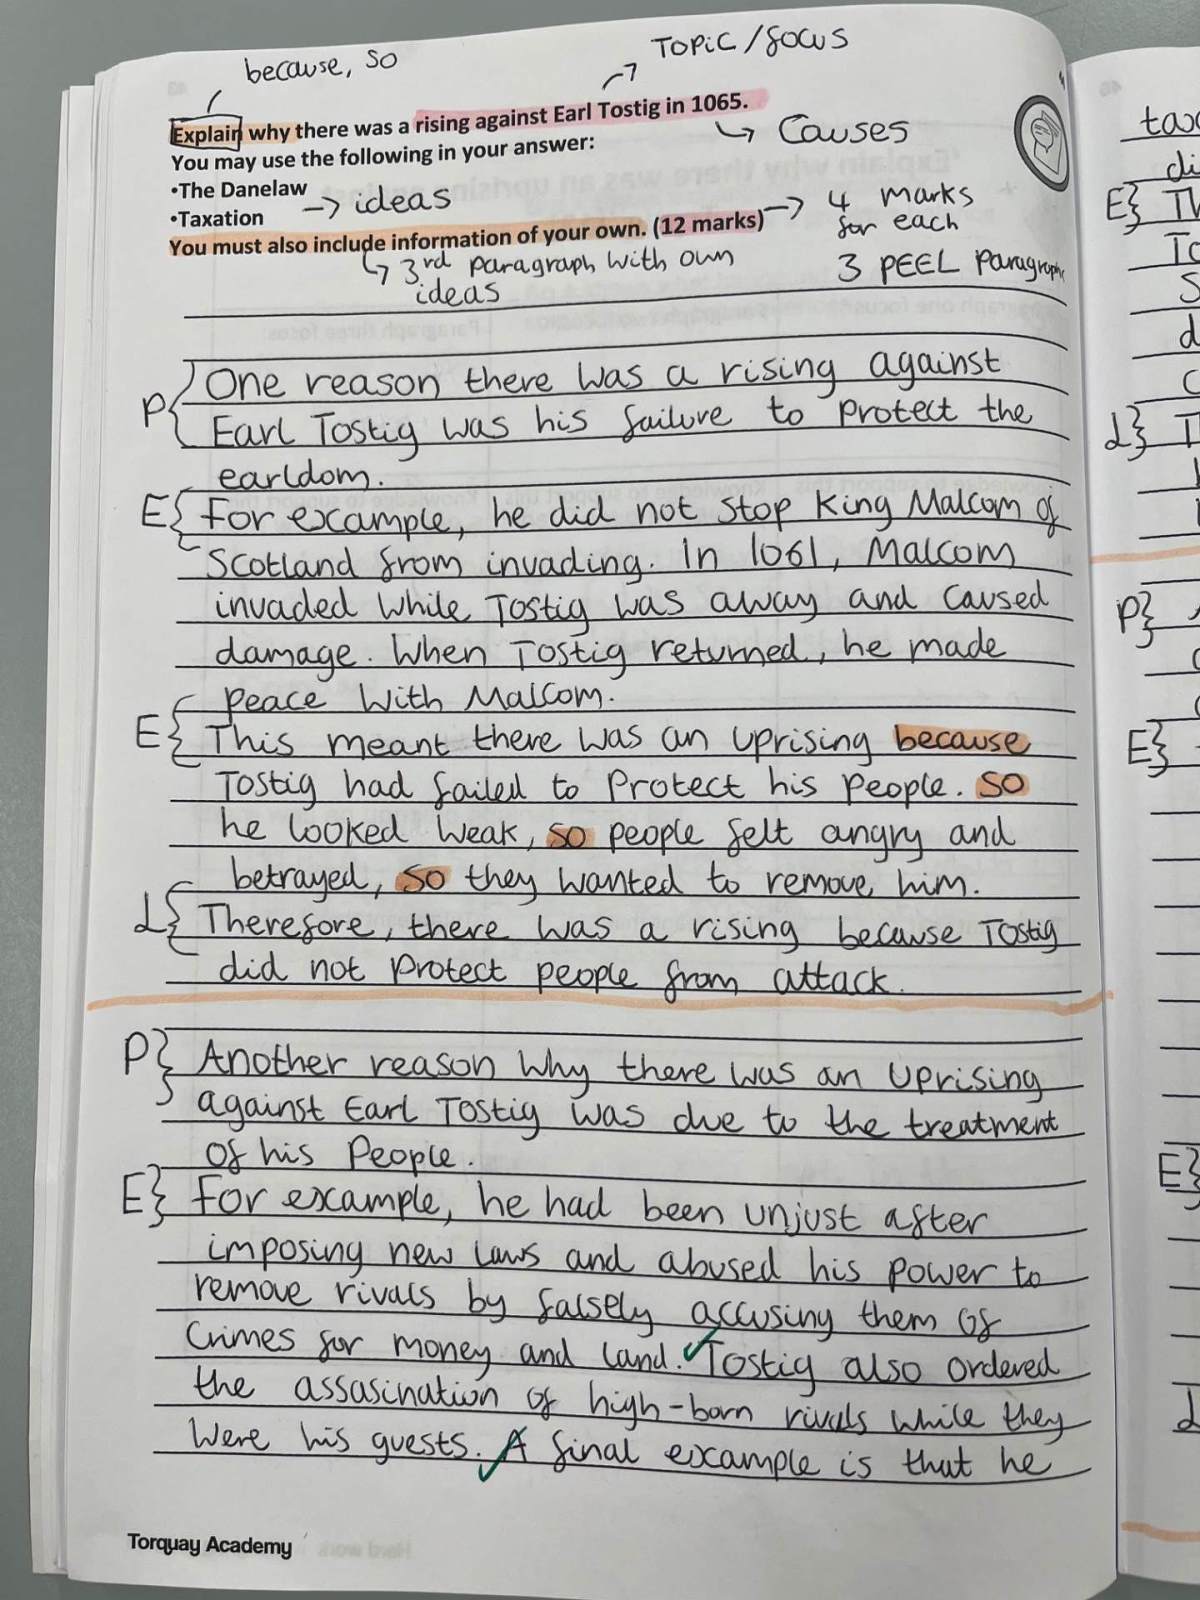 because, so
Topic/focus
Explain why there was a rising against Earl Tostig in 1065.
Causes
You may use the following in your answer:
•The Danelaw
•Taxation
ideas
You must also include information of your own. (12 marks)
4 marks
for each
3rd paragraph with own
ideas
3 PEEL Paragraphs
P
One reason there was a rising against
Earl Tostig was his failure to protect the
earldom.
E
For example, he did not stop King Malcom of
Scotland from invading. In 1061, Malcom
invaded while Tostig was away and caused
damage. When Tostig returned, he made
peace with Malcom.
E
This meant there was an uprising because
Tostig had failed to protect his people. So
he looked weak, so people felt angry and
betrayed, so they wanted to remove him.
L
Therefore, there was a rising because Tostig
did not protect people from attack.
P
Another reason why there was an uprising
against Earl Tostig was due to the treatment
of his people.
E
For example, he had been unjust after
imposing new laws and abused his power to
remove rivals by falsely accusing them of
crimes for money and land. Tostig also ordered
the assasination of high-born rivals while they
were his guests. A final example is that he
Torquay Academy
E
L
P
E
E
L